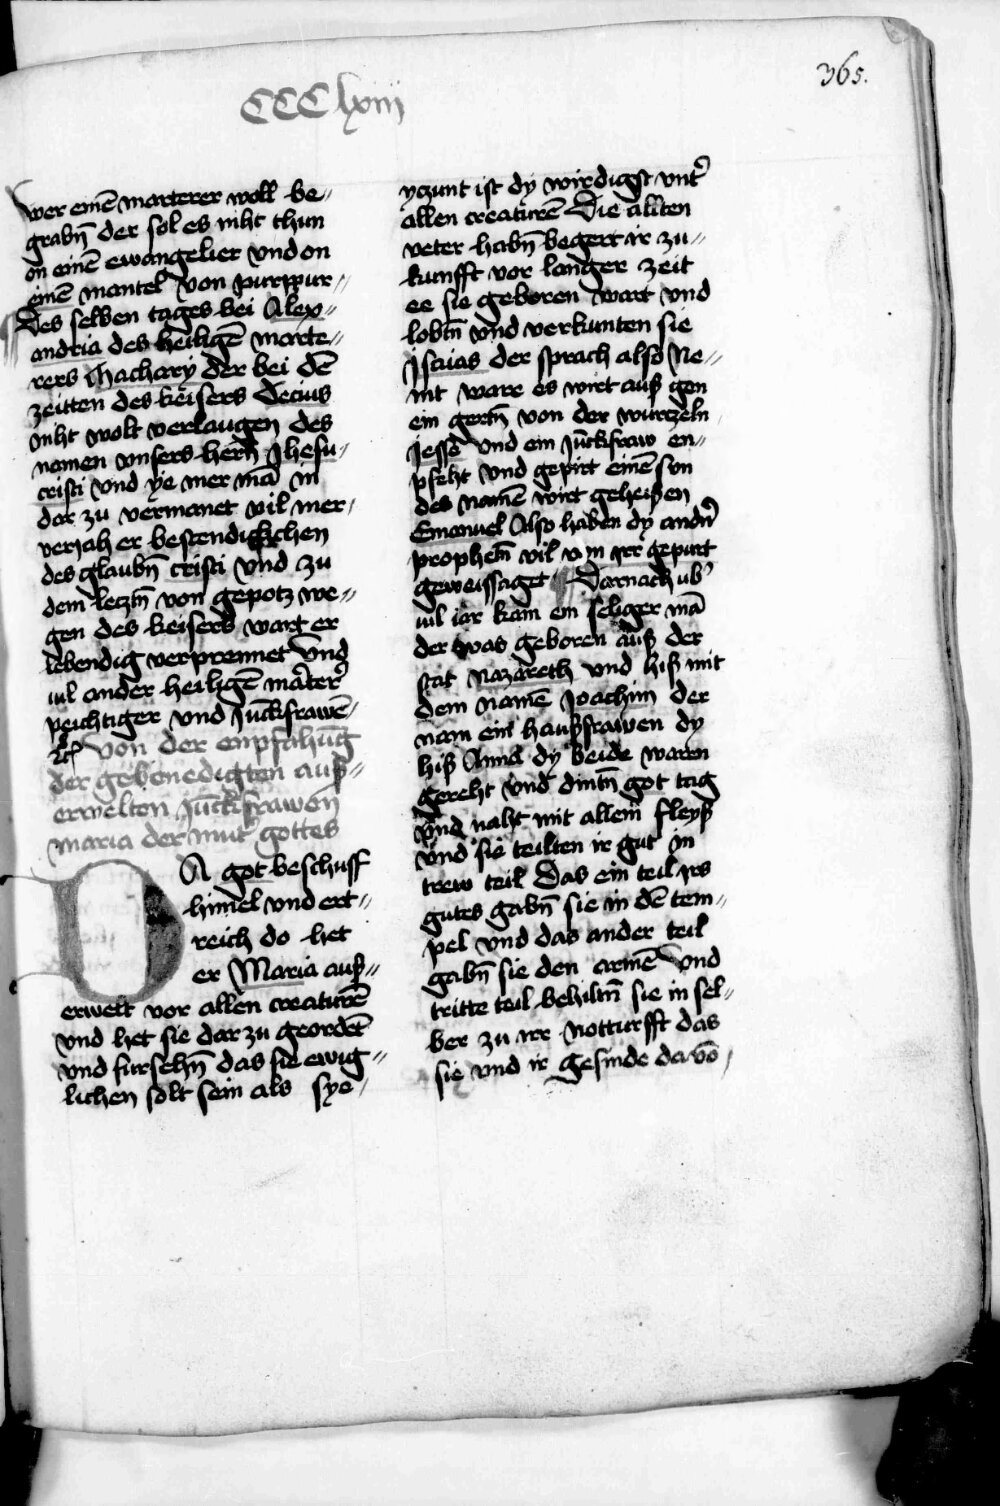 365.
CCClxiii
wer einē marterer woll be„
grabn̄ der sol es niht thun
on einē ewangelier vnd on
einē mantel von purppur„
Des selben tages bei Alex„
andria des heiligē marte„
rers Machary der bei dē
zeitten des keisers Decius
niht wolt verlaugen des
namen vnsers hern̄ Jhesu„
cristi vnd ye mer mā in
dar zu vermanet vil mer„
veriah er bestendicklichen
des glaubn̄ cristi vnd zu
dem leczn̄ von gepotz we„
gen des keisers wart er
lebendig verprennet Vnd
vil ander heiligē mārterˀ
peichtiger vnd Junckfrawē„
Von der enpfahūg
der gebenedigten auß„
erwelten Junckfrawen
maria der mut̄ gottes
DA got beschuff
himel vnd ert„
reich do het
er Maria auß„
erwelt vor allen creaturē
vnd het sie dar zu geordēt
vnd fursehn̄ das sie ewig„
lichen solt sein als sye„
yczunt ist dy wirdigst vntˀ
allen creaturē Die allten
veter habn̄ begert ir zu„
kunfft vor langer zeit
ee sie geboren wart vnd
lobtn̄ vnd verkunten sie
Isaias der sprach also Ne„
mt ware es wirt auß gen
ein gertn̄ von der wurtzeln
Jesse vnd ein Junckfraw en„
pfeht vnd gepirt einē sun
des namē wirt geheißen
Emanuel Also haben dy andˀn
prophetn̄ vil von irr gepurt
geweissaget Darnach vbˀ
vil iar kam ein seliger mā
der was geboren auß der
stat Nazareth vnd hiß mit
dem namē Joachim der
nam ein haußfrawen dy
hiß Anna dy beide waren
gereht vnd dintn̄ got tag
vnd naht mit allem fleyß
vnd sie teilten ir gut in
trew teil Das ein teil irs
gutes gabn̄ sie in dē tem„
pel vnd das ander teil
gabn̄ sie den armē Vnd
tritte teil behiltn̄ sie in sel„
ber zu irr notturfft das
sie vnd ir gesinde da vō„